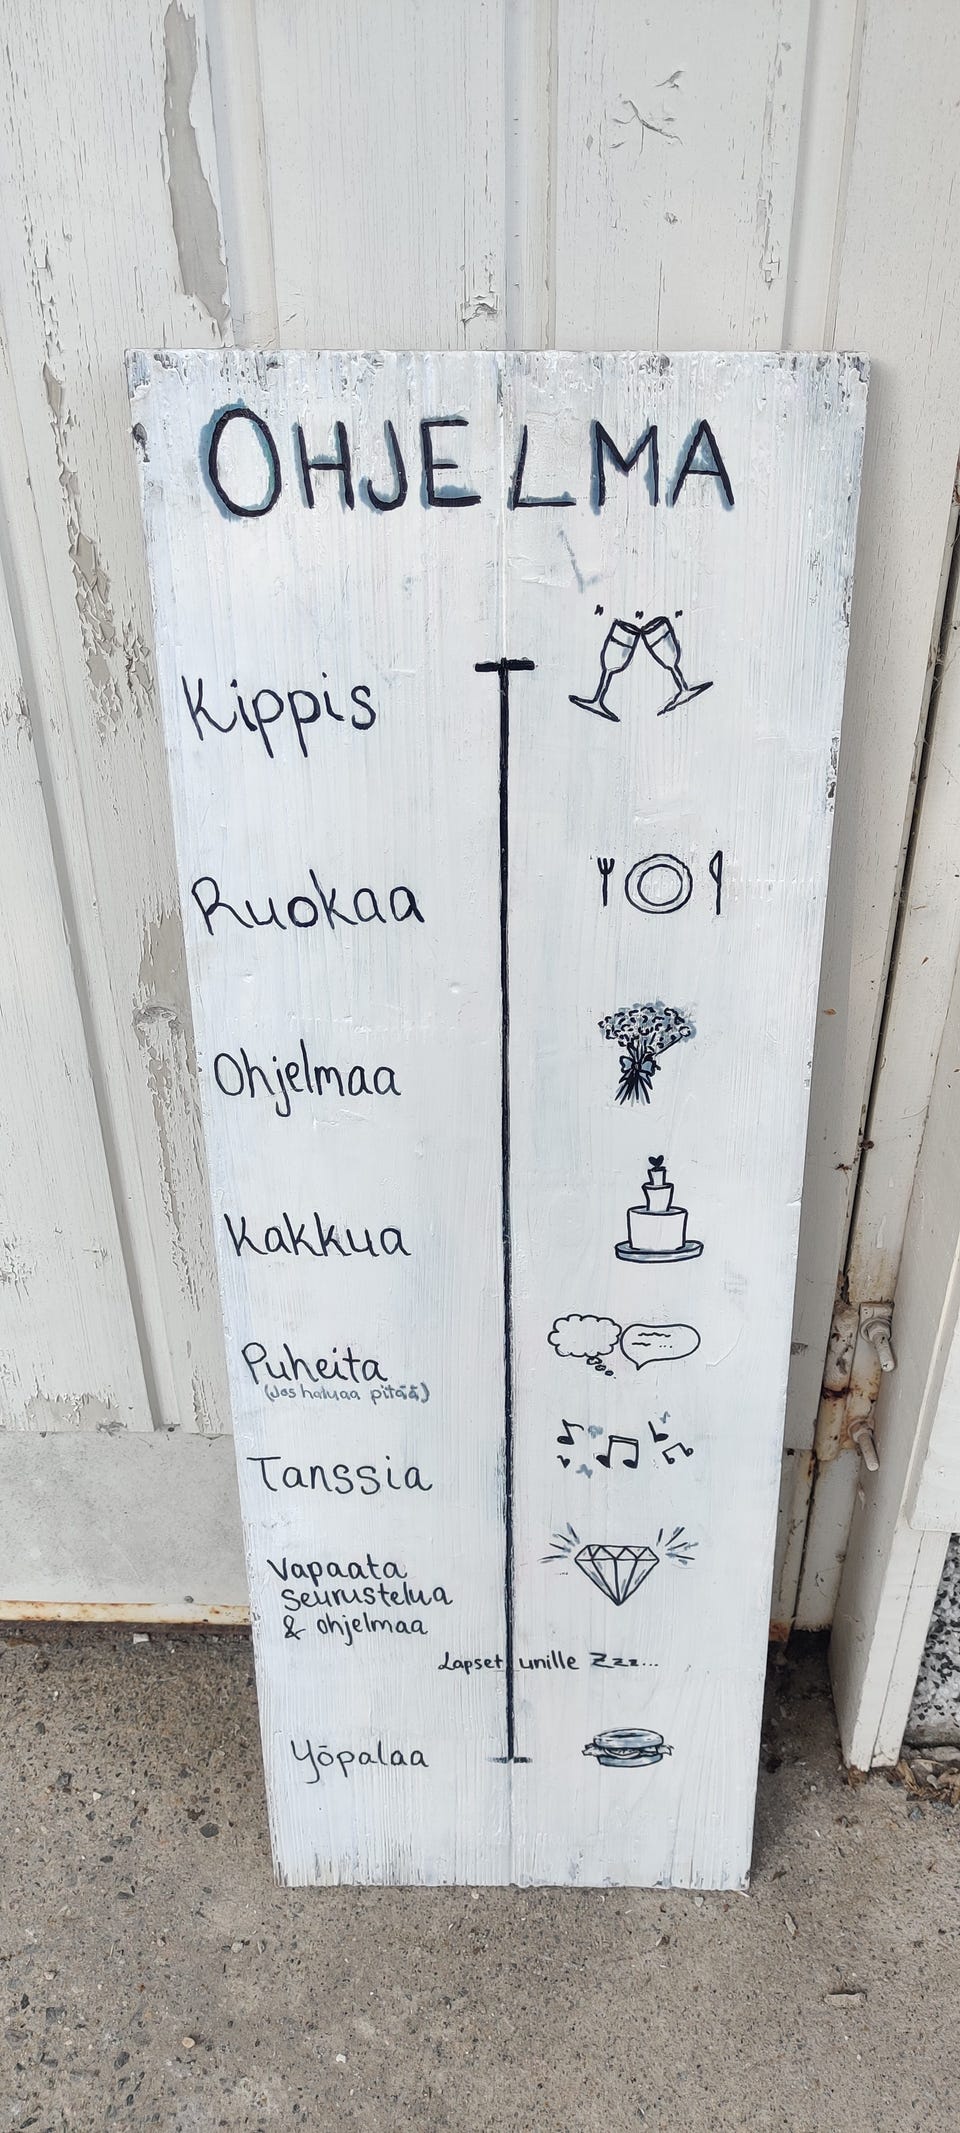 OHJELMA
Kippis
Ruokaa
Ohjelmaa
Kakkua
Puheita
(Jos haluaa pitää)
Tanssia
Vapaata
seurustelua
& ohjelmaa
Lapset unille Zzz...
Yöpalaa